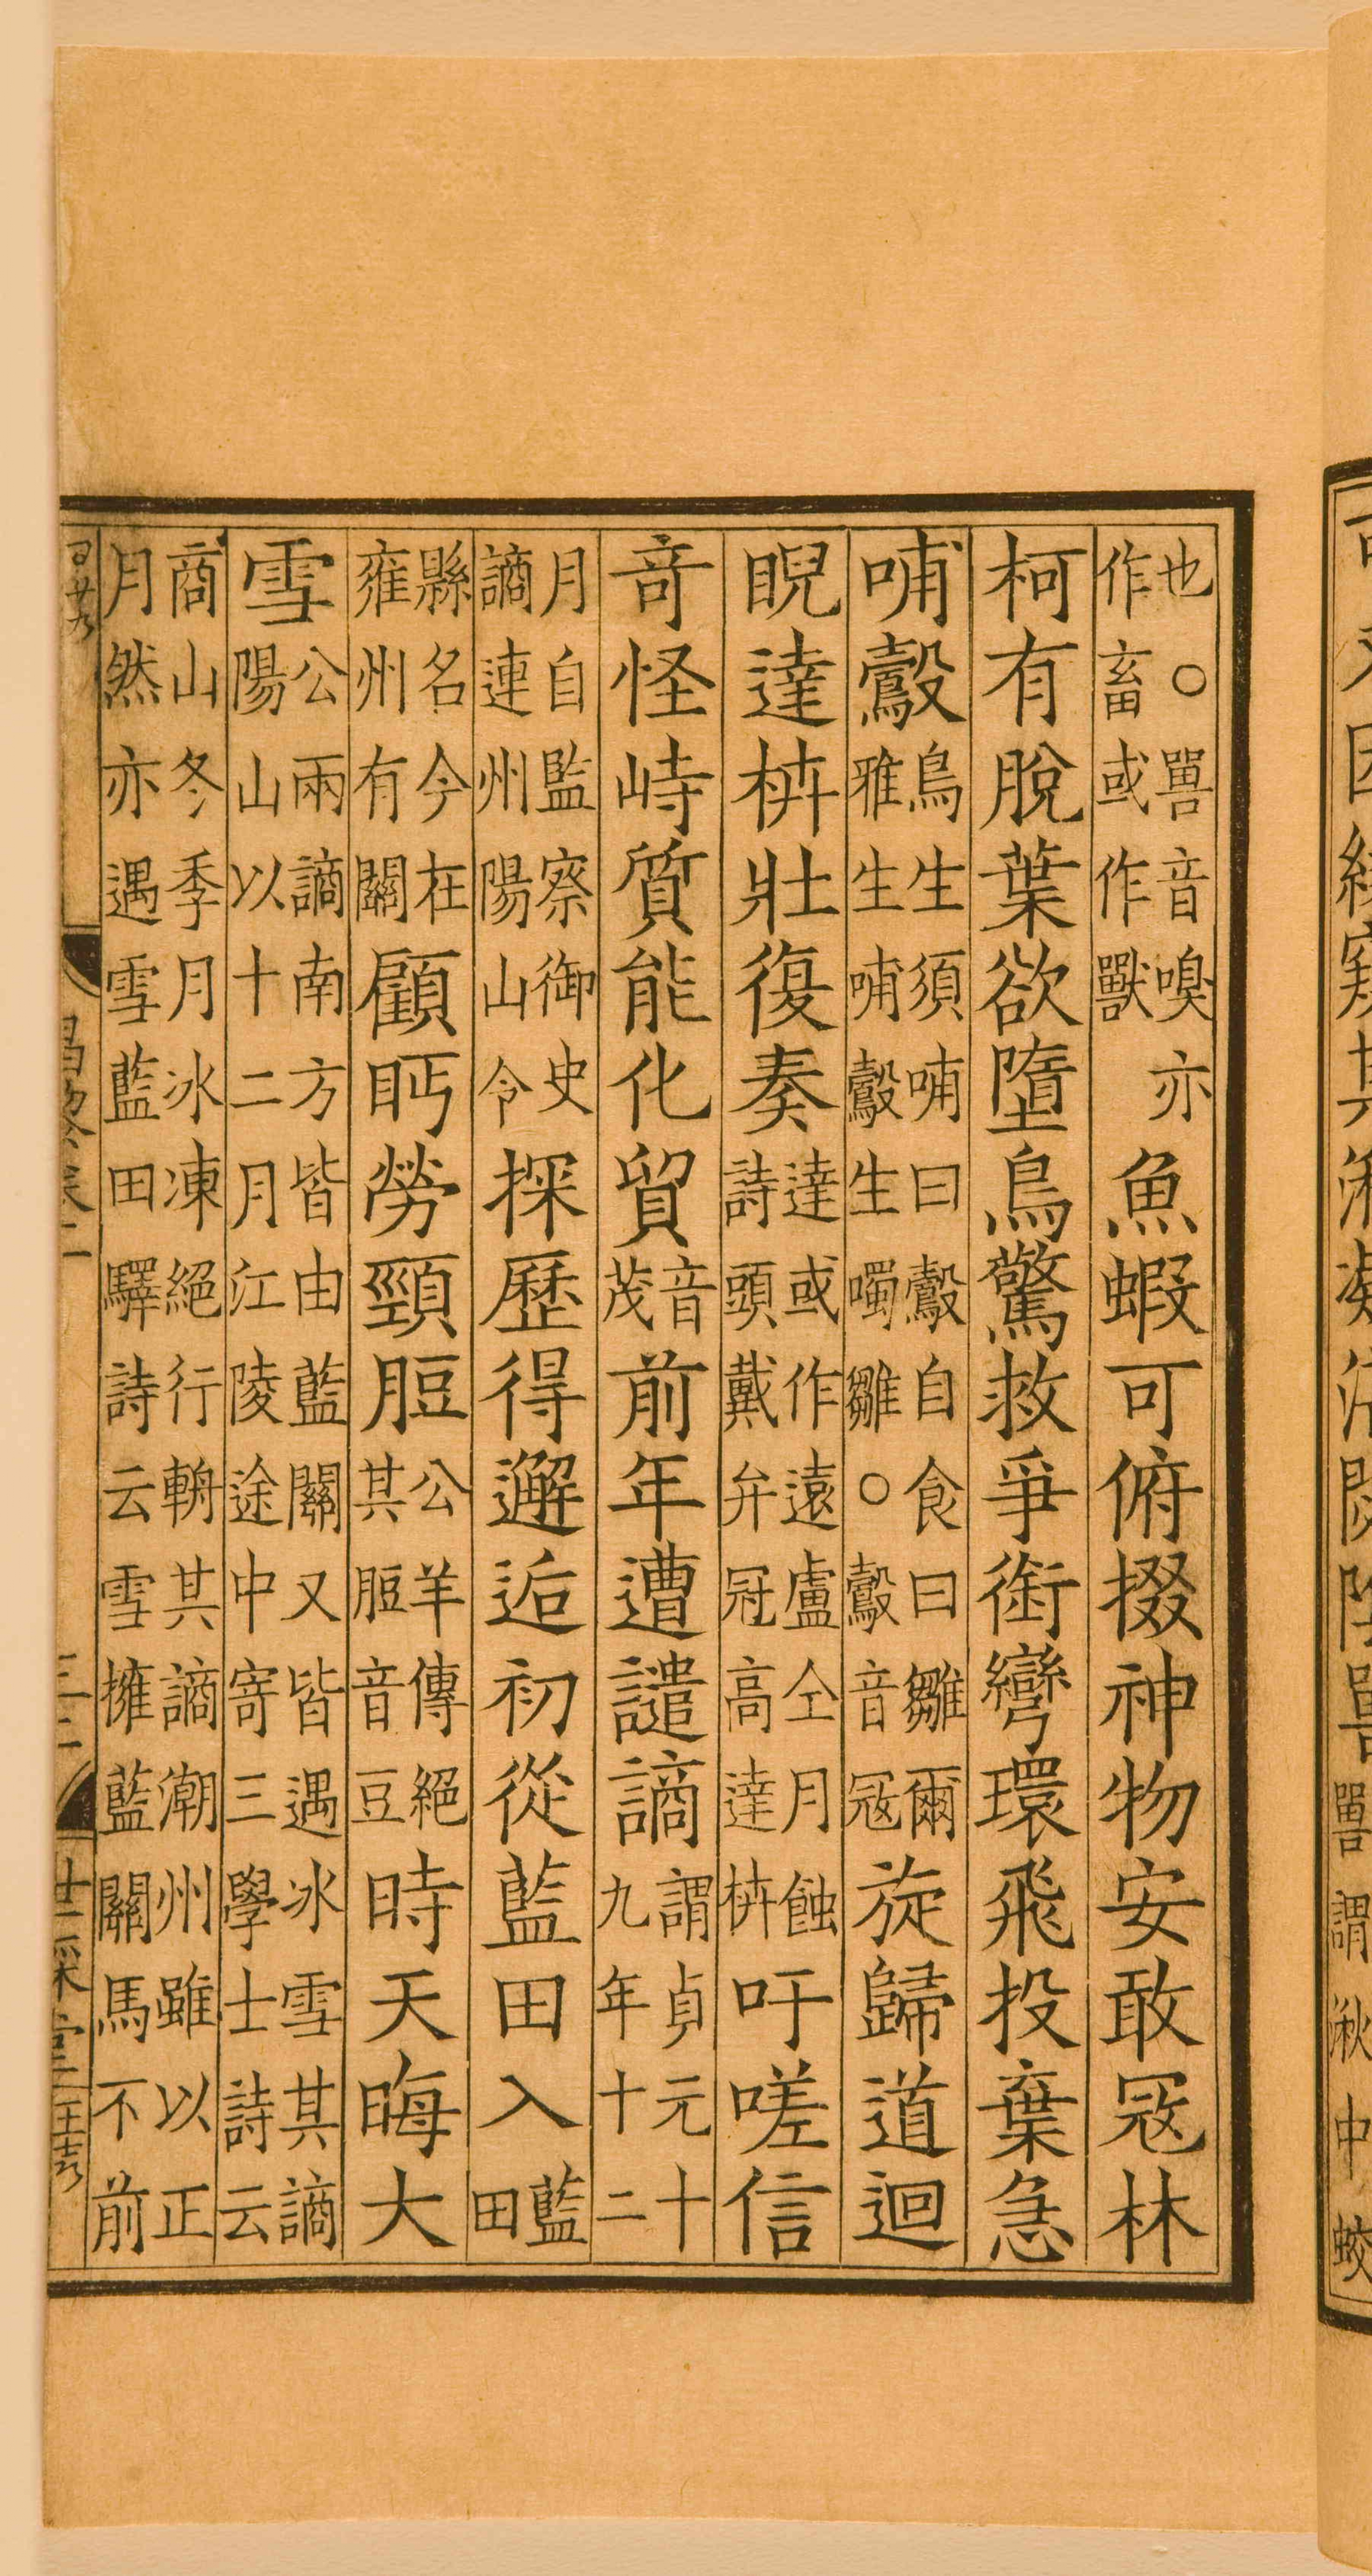 也○嘼音嗅亦作畜或作獸魚蝦可俯掇神物安敢寇林
柯有脫葉欲墮鳥驚救爭銜彎環飛投棄急
哺鷇鳥生須哺曰鷇自食曰雛爾雅生哺鷇生噣雛○鷇音寇旋歸道迴
睨達枿壯復奏達或作遠盧仝月蝕詩頭戴弁冠高達枿吁嗟信
奇怪峙質能化貿音茂前年遭譴謫謂貞元十九年十二
月自監察御史謫連州陽山令探歷得邂逅初從藍田入藍田
縣名今在雍州有關顧眄勞頸脰公羊傳絕其脰音豆時天晦大
雪公兩謫南方皆由藍關又皆遇冰雪其謫陽山以十二月江陵途中寄三學士詩云
商山冬季月冰凍絕行輈其謫潮州雖以正月然亦遇雪藍田驛詩云雪擁藍關馬不前
昌黎卷二
三二
世綵堂
嘼謂湫中蛟